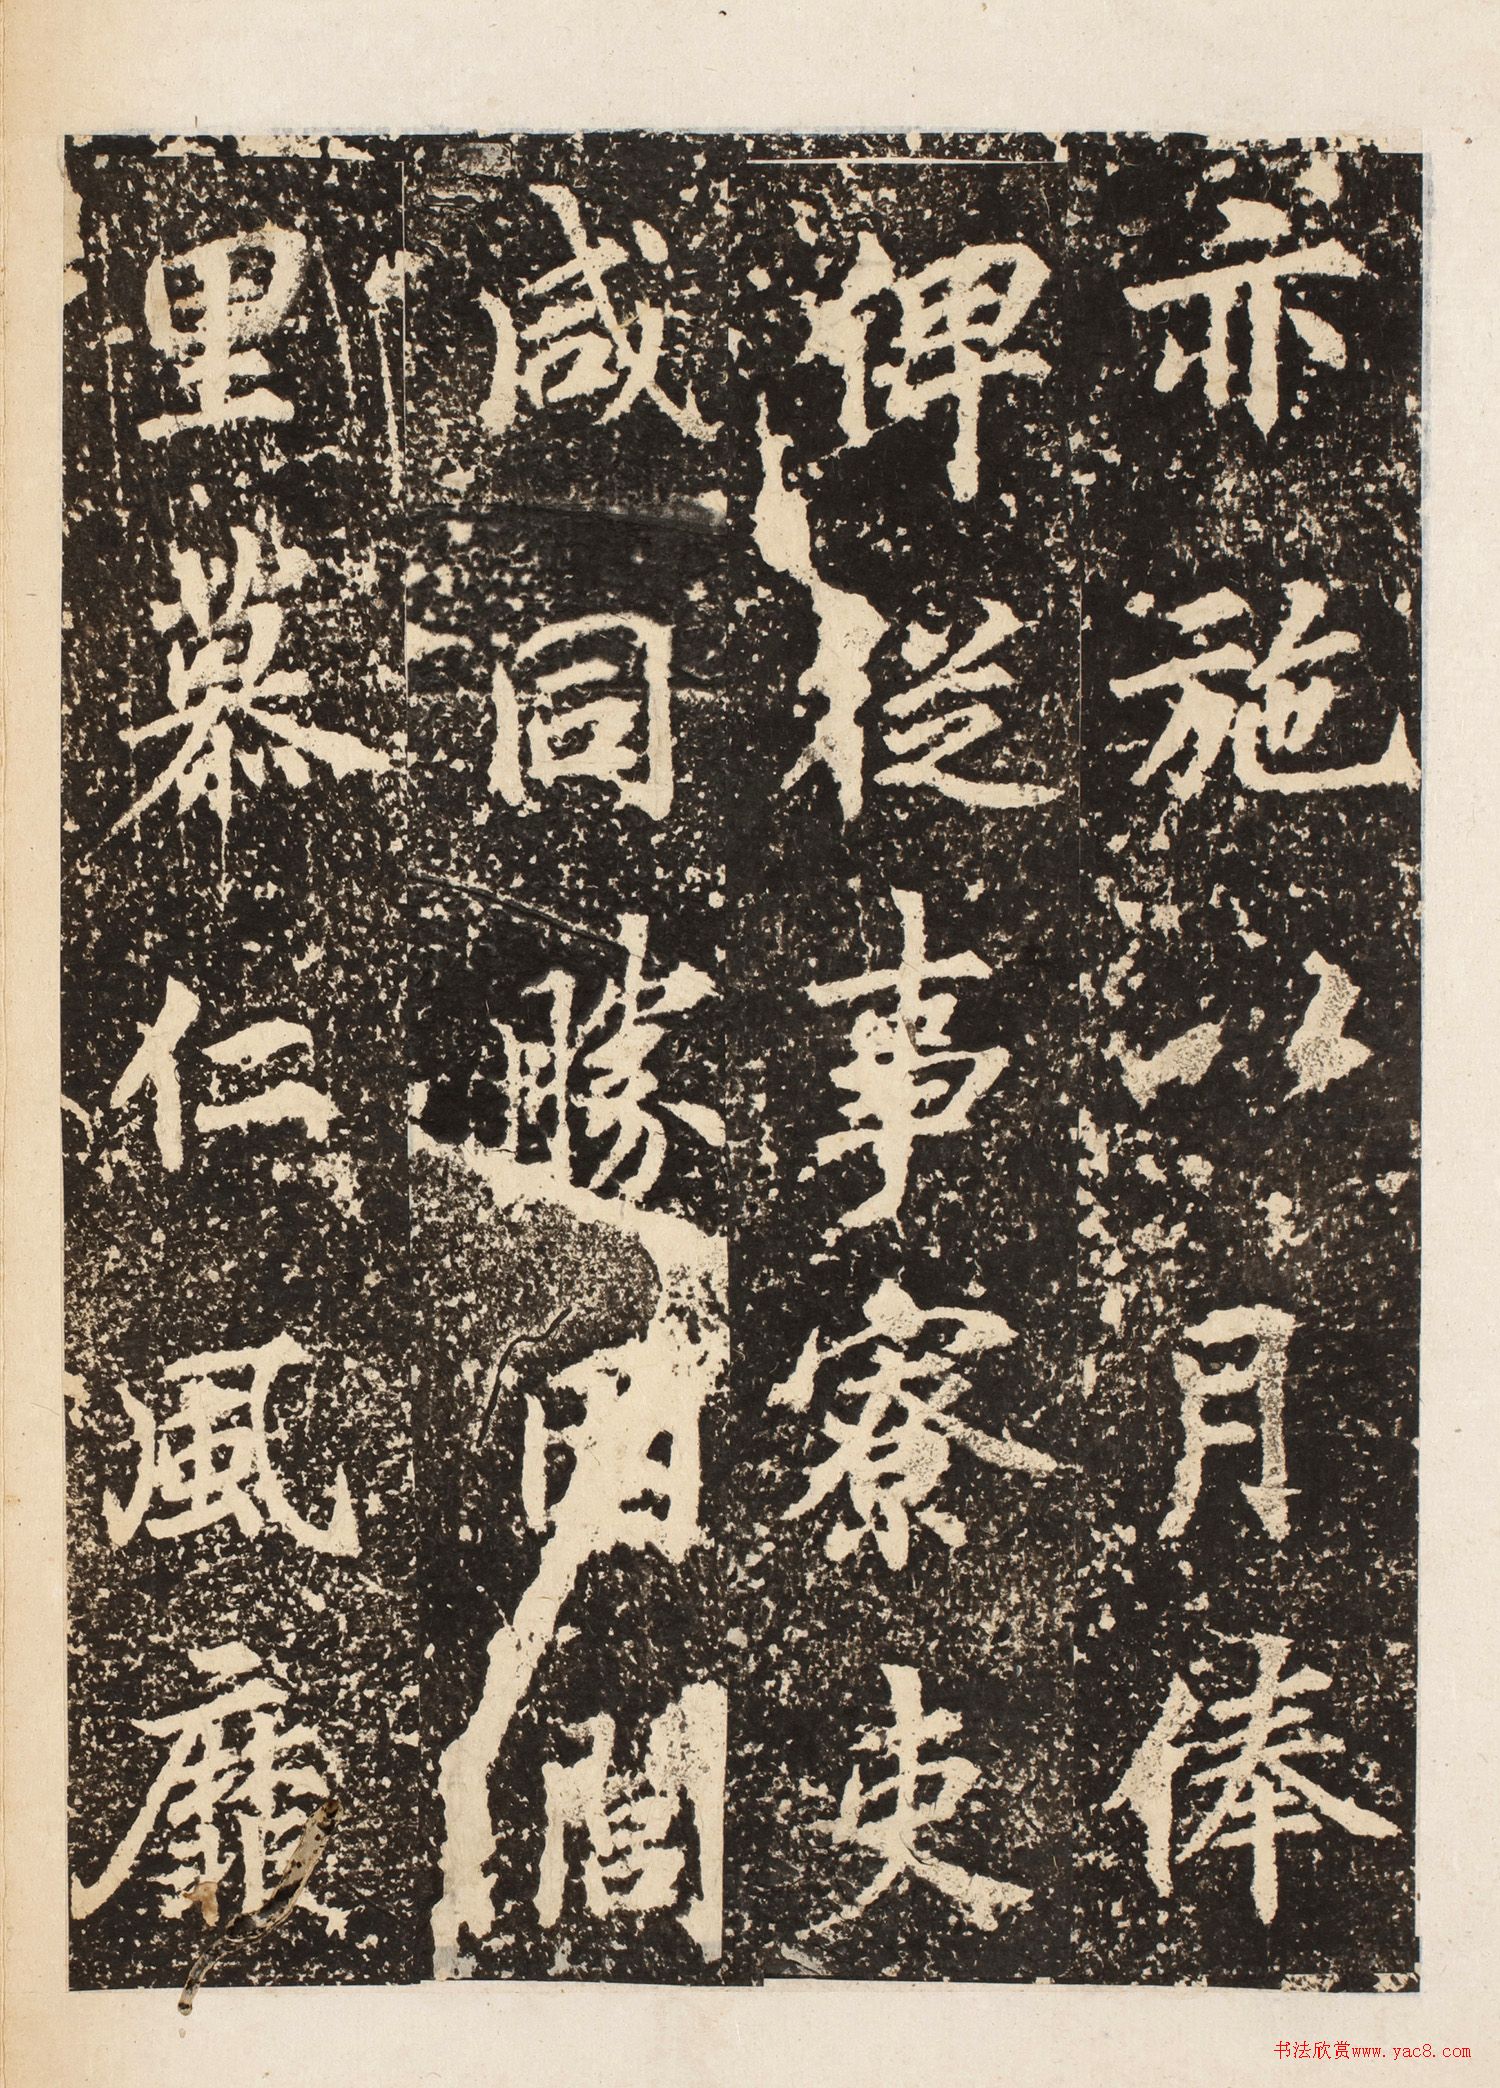 亦施以月俸
俾従事寮吏
咸同勝因閭
里慕仁風靡
书法欣赏www.yac8.com